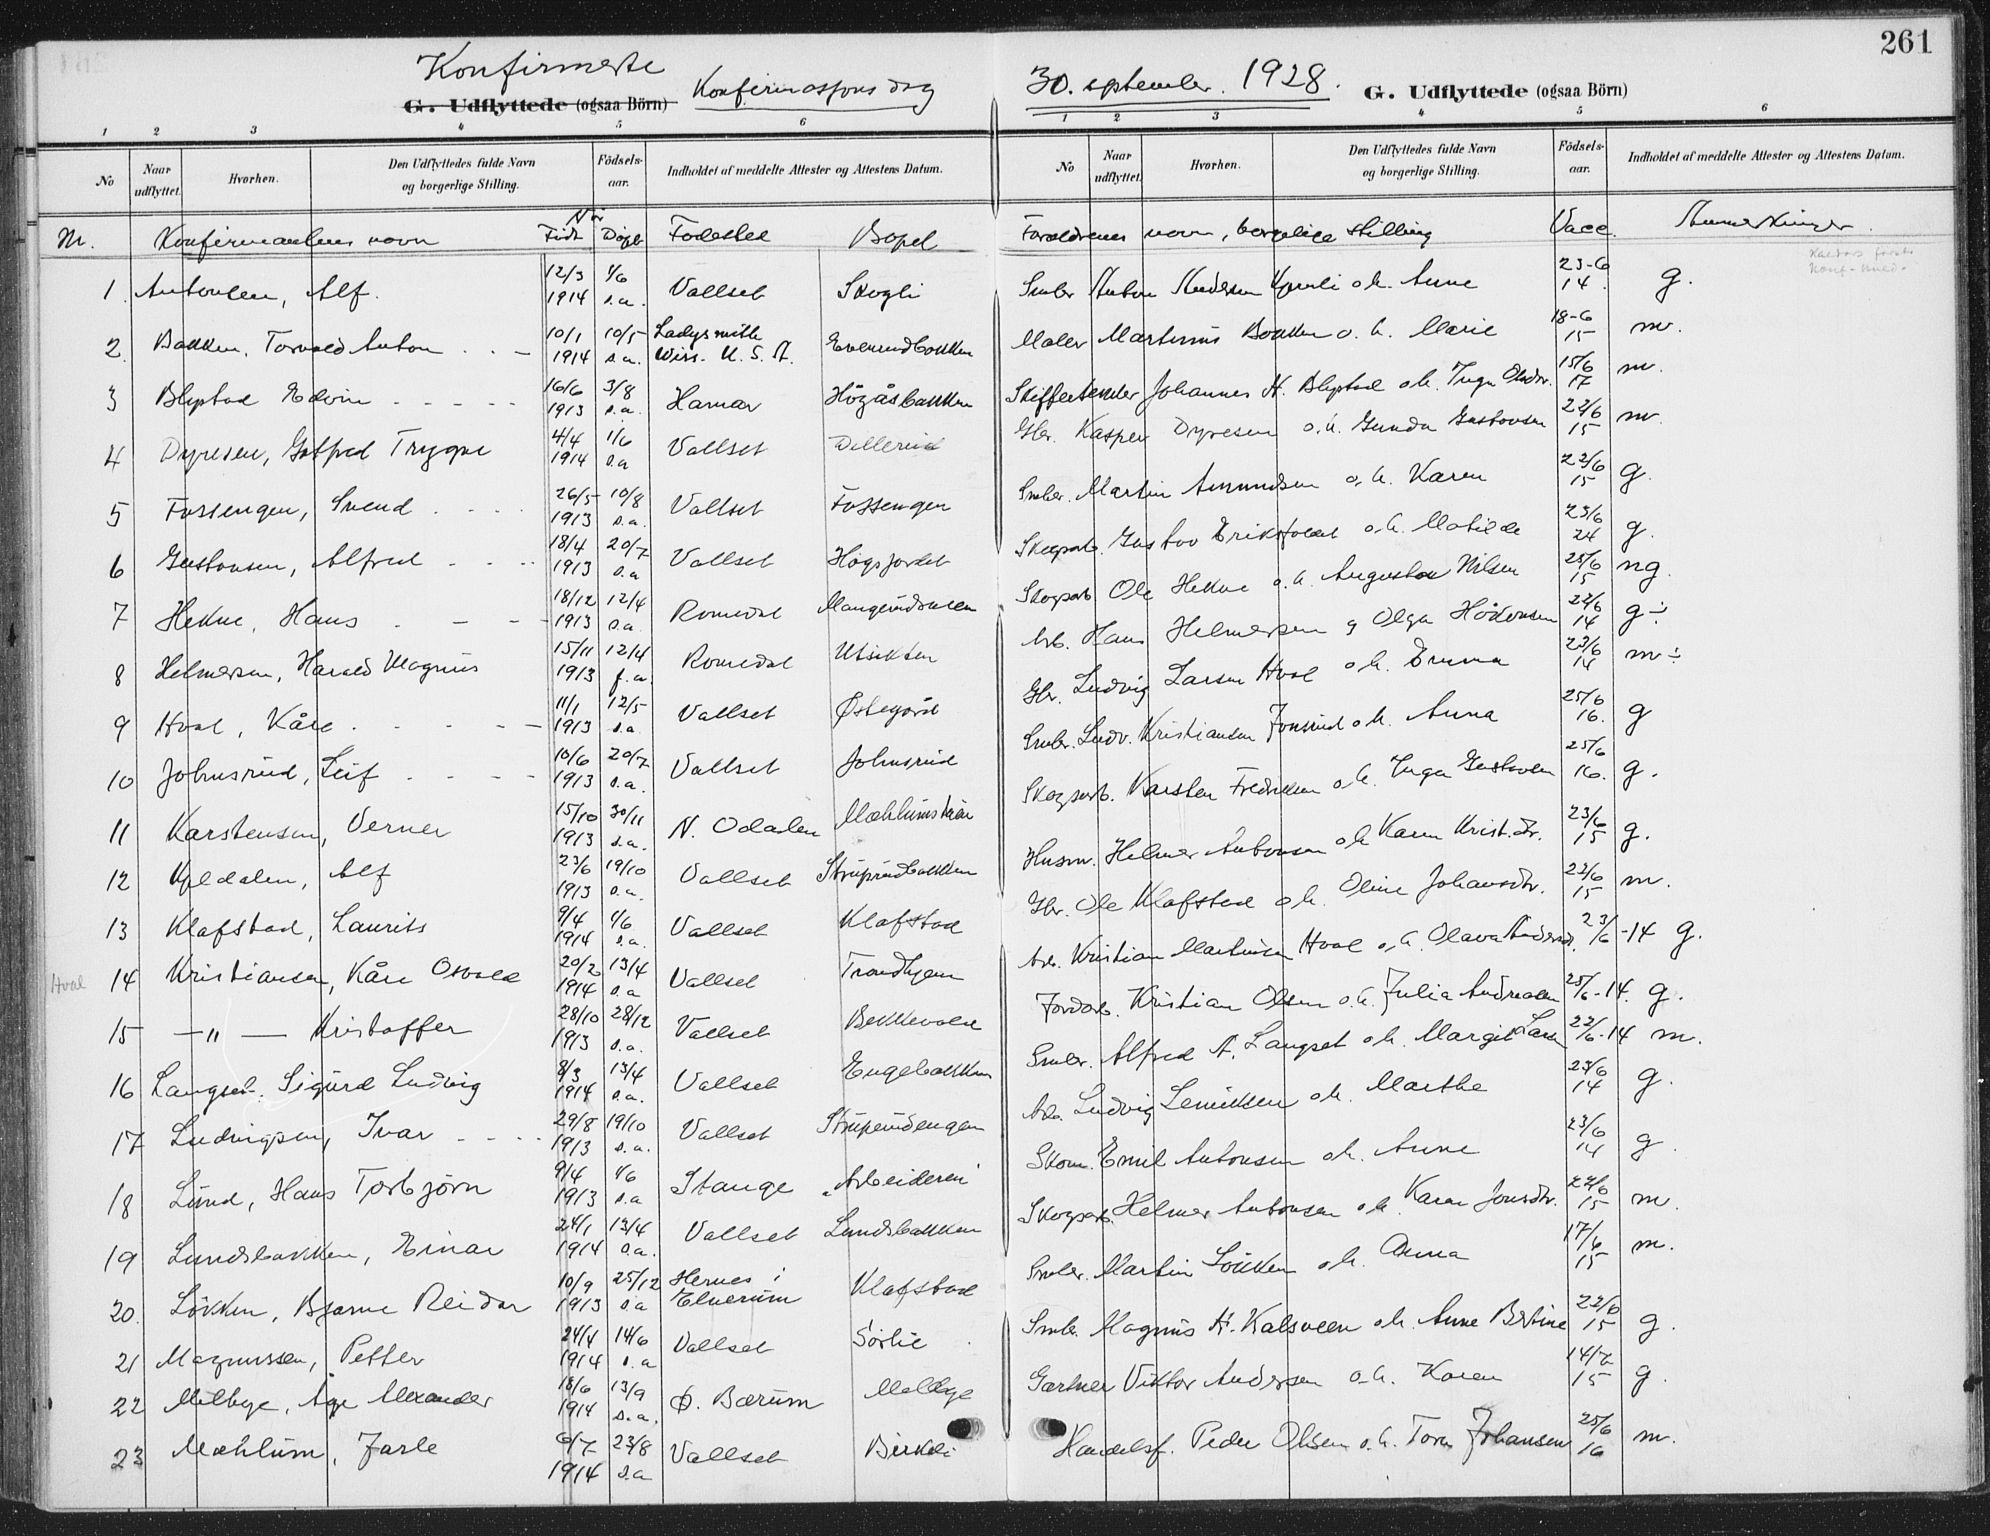 261
Konfirmerte Konfirmasjonsdag 30. september 1928.
G. Udflyttede (ogsaa Börn) G. Udflyttede (ogsaa Börn)
1 2 3 4 5 6 1 2 3 4 5 6
No Naar udflyttet. Hvorhen. Den Udflyttedes fulde Navn og borgerlige Stilling. Födsels-aar. Indholdet af meddelte Attester og Attestens Datum.
No Naar udflyttet. Hvorhen. Den Udflyttedes fulde Navn og borgerlige Stilling. Födsels-aar. Indholdet af meddelte Attester og Attestens Datum.
Nr. Konfirmantens navn Når Födt Döpt Fødested Bopel Foreldrenes navn, borgelige stilling Vacc. Anmerkninger.
1. Antonsen, Alf. 12/3 1914 1/6 s.a. Vallset Skogli Smbr. Anton Andersen o.h. Anne 23-6 14 g.
2. Bakken, Torvald Anton 10/1 1914 10/5 s.a. Ladysmith Wiss. U.S.A. Evenrudbakken Maler Martinus Bakken o.h. Marie 18-6 15 m.
3 Blystad Edvin 16/6 1913 3/8 s.a. Hamar Högåsbakken Skiftetender Johannes H. Blystad o.h. Inga Olsdr. 15/6 17 m.
4 Dyresen, Gotfred Trygve 4/4 1914 1/6 s.a Vallset Dellerud Gbr. Kasper Dyresen o.h. Gunda Gustavsen 22/6 15 m.
5 Fossengen, Svend 26/5 1913 10/8 s.a. Vallset Fossengen Smbr. Martin Amundsen o.h. Karen 22/6 15 g.
6 Gustavsen, Alfred 18/4 1913 20/7 s.a Vallset Högsjordet Skogsarb. Gustav Eriksen o.h. Matilde 23/6 24 g.
7 Hekne, Hans 18/12 1913 12/4 s.a. Romedal Skogsarb Ole Hekne o.h. Augusta Nilsen 25/6 15 ng.
8 Helmersen, Harald Magnus 15/11 1913 12/4 f.a. Romedal Utsikten Arb. Hans Helmersen g Olga Håkonsen 22/6 14 g÷
9 Hval, Kåre 11/1 1913 12/5 s.a. Vallset Østegård Gbr. Ludvig Larsen Hval o.h. Emma 23/6 14 m÷
10 Johnsrud, Leif 10/6 1913 20/7 s.a. Vallset Johnsrud Smbr. Ludv. Kristiansen Jonsrud o.h. Anna 25/6 16. g
11 Karstensen, Verner 15/10 1913 30/11 s.a. N. Odalen Mæhlumstrøen Skogsarb. Karsten Fredriksen o.h. Inga Gustavsen 25/6 16. g.
12 Kjeldalen, Alf 23/6 1913 19/10 s.a. Vallset Struprudbakken Husm. Helmer Antonsen o.h Karen Krist.dr. 23/6 15 g.
13 Klafstad, Laurits 9/4 1914 1/6 s.a. Vallset Klafstad Gbr. Ole Klafstad o.h. Oline Johansdtr. 22/6 15 m.
Hval 14 Kristiansen, Kåre Osvald 20/2 1914 13/4 s.a Vallset Trondhjem Arb. Kristian Martinsen Hval o.h. Olava Andersd. 23/6 -14 g.
15 -"- Kristoffer 28/10 1913 28/12 s.a. Vallset Bekkevold Jordarb. Kristian Olsen o.h. Julia Andreasen 25/6 -14. g.
16 Langset. Sigurd Ludvig 8/3 1914 13/4 s.a. Vallset Engebakken Smbr. Alfred A. Langset o.h. Margit Larsn 22/6 -14 m.
17 Ludvigsen, Ivar 29/8 1913 19/10 s.a. Vallset Struprudengen Arb. Ludvig o.h. Marthe 23/6 14 g.
18 Lund, Hans Torbjörn 9/4 1913 1/6 s.a Stange "Arbeideren" Skom. Emil Antonsen o.h. Anne 23/6 14 g.
19 Lundsbakken, Einar 24/1 1914 13/4 s.a. Vallset Lundsbakken Skogsarb. Helmer Antonsen o.h. Karen Jonsdtr. 22/6 15 m.
20. Løkken, Bjarne Reidar 10/9 1913 25/12 s.a Hernes i Elverum Klafstad Smbr. Martin Løkken o.h. Anna 17/6 15 m.
21 Magnussen, Petter 24/4 1914 14/6 s.a Vallset Sørlie Smbr. Magnus H. Kalsveen o.h. Anne Bertine 22/6 15 g.
22 Melbye, Åge Alexander 18/6 1914 13/9 s.a. Ø. Bærum Melbye Gartner Viktor Andersen o.h. Karen 14/6 15 g.
23 Mæhlum, Jarle 6/7 1914 23/8 s.a Vallset Birkeli Handelsf. Peder Olsen o.h. Tora Johansen 25/6 16 m.